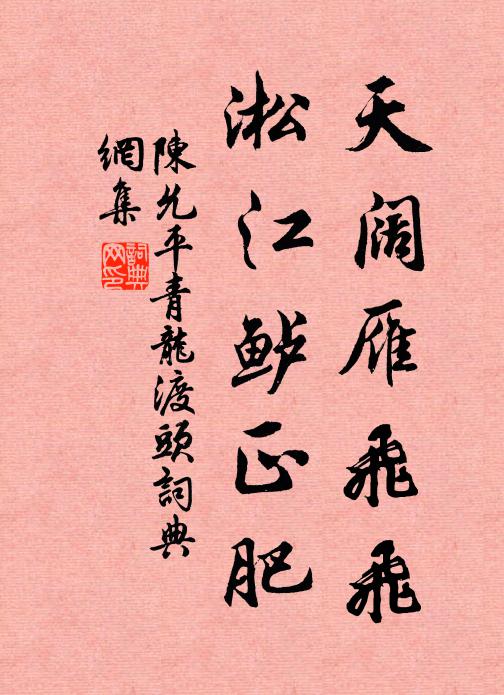 天阔雁飛飛
淞江鲈正肥
陳允平青龍渡頭詞典
網集
詞典網印